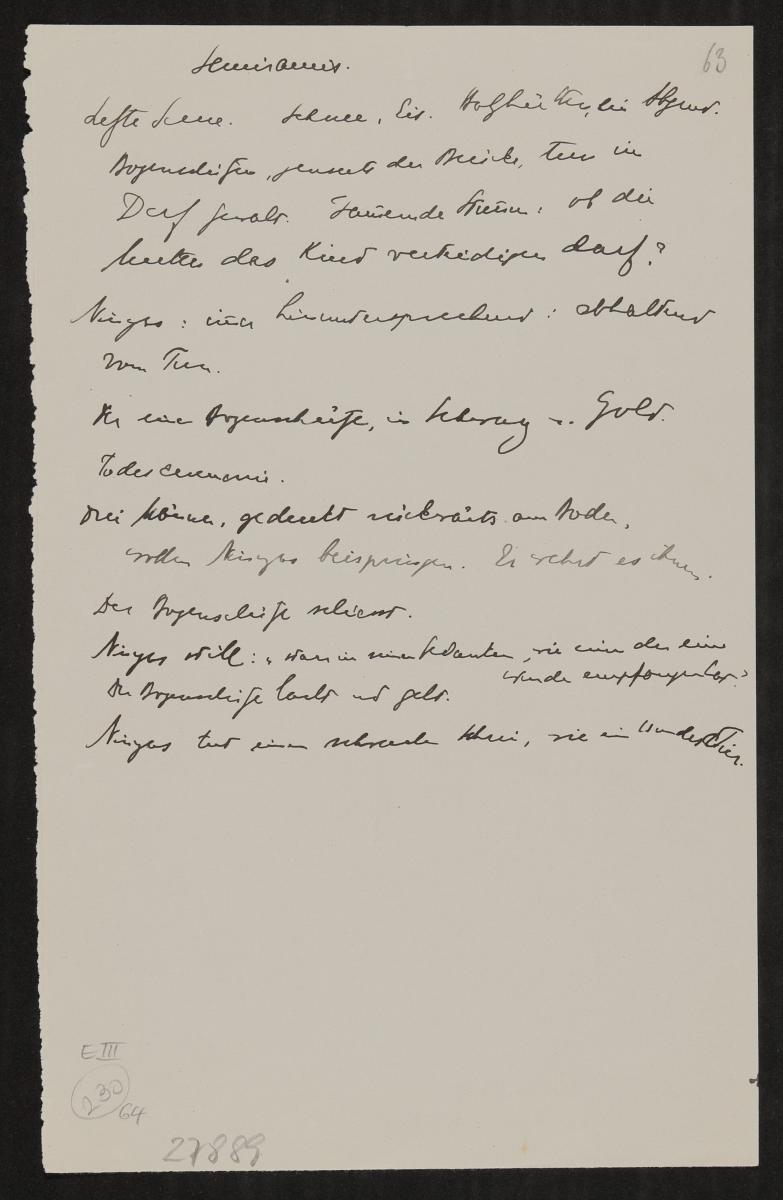 63
Semiramis.
Letzte Scene. Schnee, Eis. Holzhütten, ein Abgrund.
Bogenschützen, jenseits der Brücke, tun im
Dorf Gewalt. Tausende Stimmen: ob die
Mutter das Kind verteidigen darf?
Ninyas: immer hinuntersprechend: abhaltend
vom Tun.
Der eine Bogenschütze, in Schwarz u. Gold.
Todesceremonie.
Drei Männer, geduckt rückwärts am Boden,
wollen Ninyas beispringen. Er wehrt es ihnen.
Der Bogenschütze schiesst.
Ninyas still: " war in seinen Gedanken, wie einer der eine
Wunde empfangen hat?
Der Bogenschütze lacht und geht.
Ninyas tut einen schrei, wie ein wundes Tier.
E III
230
64
27889